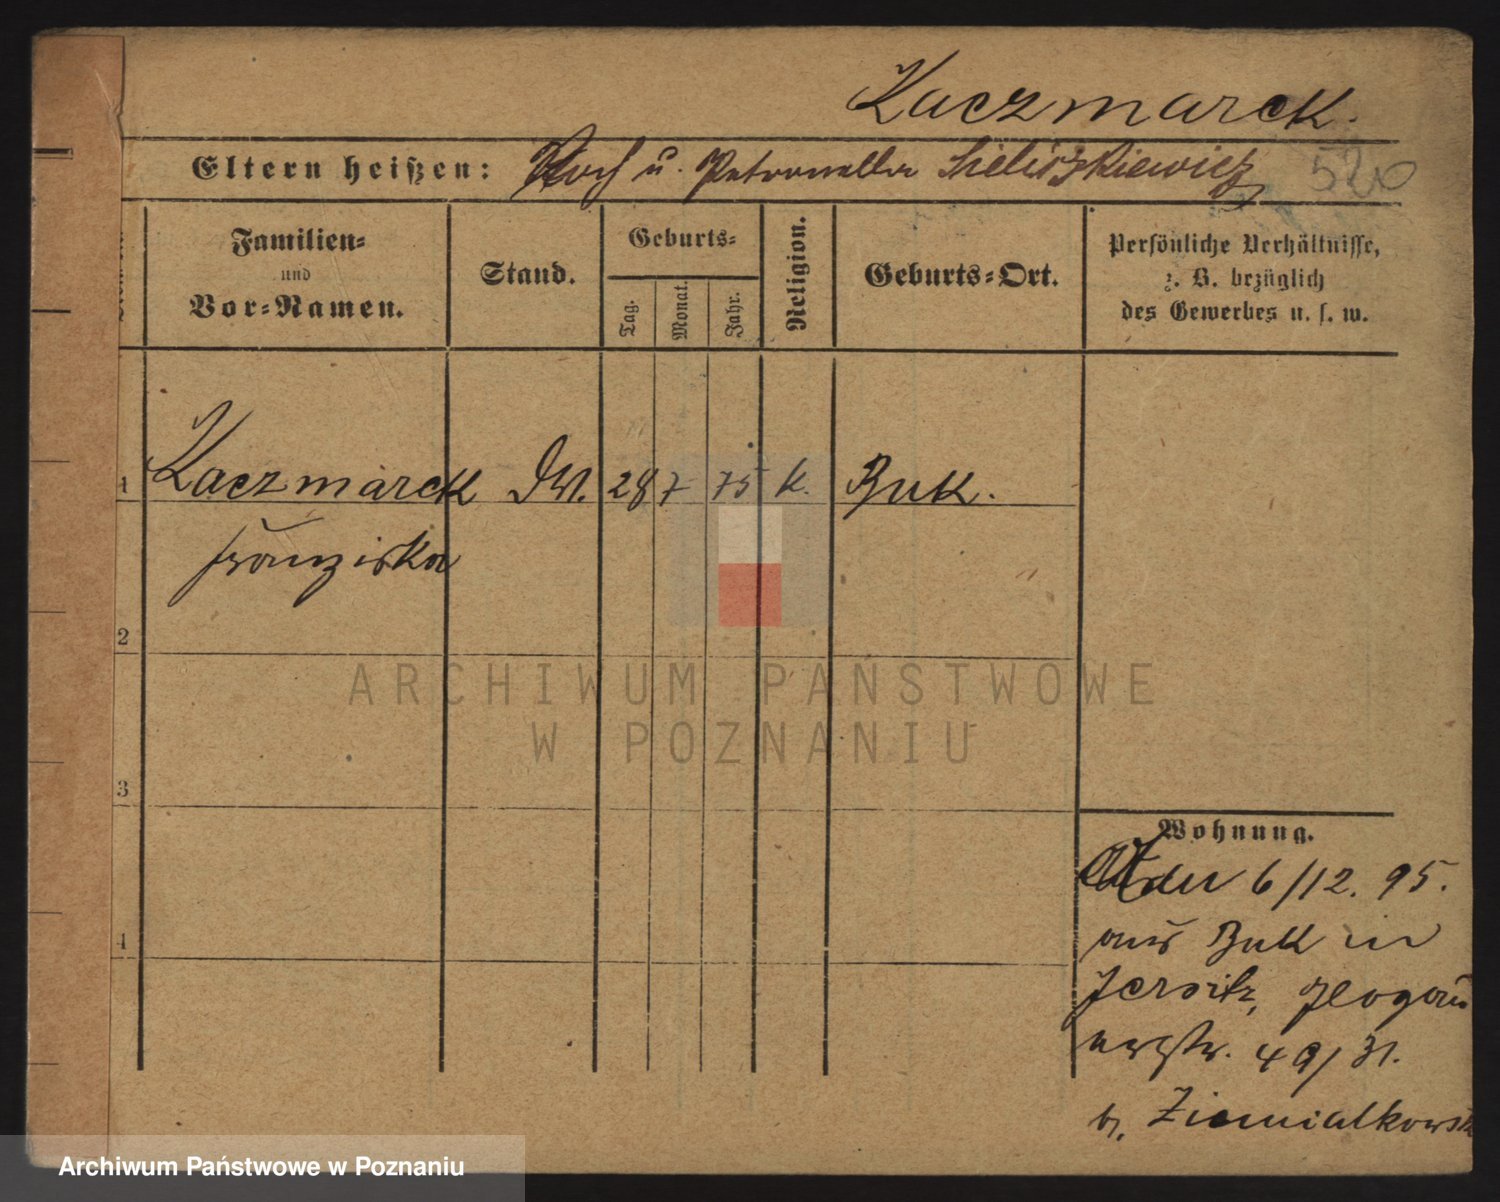 Kaczmarek.
Eltern heißen: Roch u. Petronella
520
Familien-
und
Vor-Namen.
Stand.
Geburts-
Tag.
Monat.
Jahr.
Religion.
Geburts-Ort.
Persönliche Verhältnisse,
z. B. bezüglich
des Gewerbes u. s. w.
1 Kaczmarek 28 7 75 k. Buk.
Franziska
2
3
4
Wohnung.
6/12. 95.
aus Buk in
Jersitz, Glogau
erstr. 49/31.
b. Ziemialkowsk
ARCHIWUM PAŃSTWOWE
W POZNANIU
Archiwum Państwowe w Poznaniu